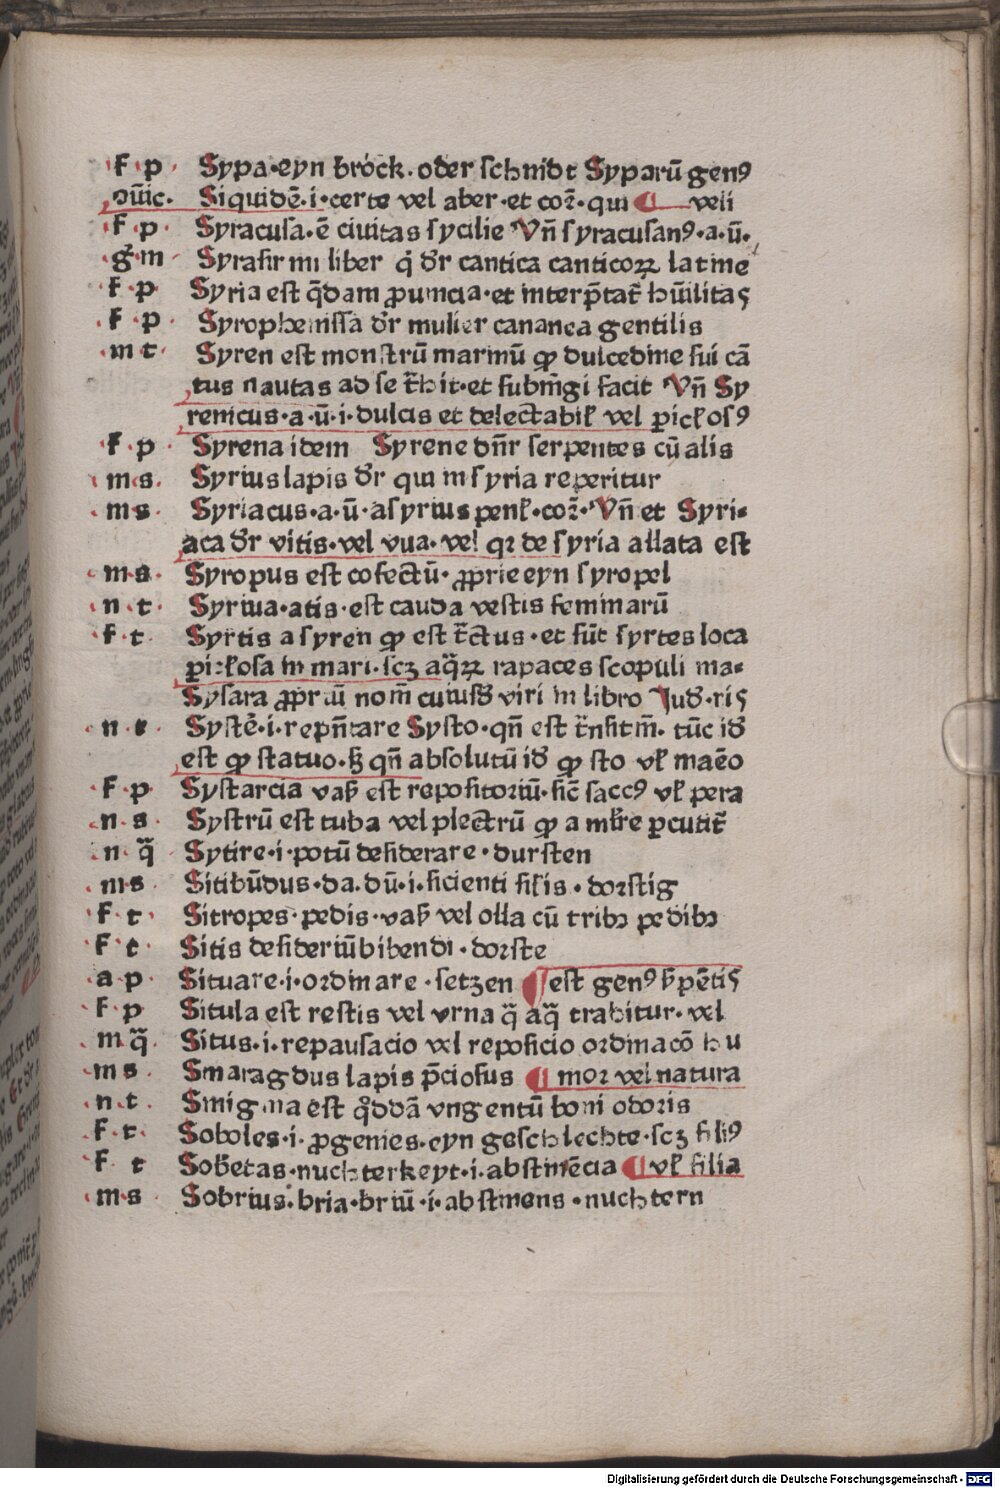 f p Sypa·eyn brŏck·oder schnidt Syparū genꝰ
ɔiūc. Siquidē·i·certe vel aber·et coꝛ̄·qui ¶ veli
f p· Syracusa·ē ciuitas sycilie Vn̄ syracusanꝰ·a·ū·
g̾·m Syrasir mi liber q̇ dr̄ cantica canticoꝝ latine
f·p Syria est q̄dam ꝓuincia·et interp̄tat̄ hūilitas
f·p· Syrophenissa dr̄ mulier cananea gentilis
m t· Syren est monstrū marinū ꝙ dulcedine sui cā
tus nautas ad se t̄hit·et submꝛ̄gi facit Vn̄ Sy
renicus·a·ū·i·dulcis et delectabil̄ vel ꝑicl̄osꝰ
f·p· Syrena idem Syrene dn̄r serpentes cū alis
m·s· Syrius lapis dr̄ qui in syria reperitur
m·s· Syriacus·a·ū·asyrius penl̄·coꝛ̄·Vn̄ et Syri-
aca dr̄ vitis·vel vua·vel qꝛ de syria allata est
m·s· Syropus est ɔfectū·ꝓprie eyn syropel
n·t· Syrma·atis·est cauda vestis feminarū
f·t· Syrtis a syren ꝙ est t̄ctus·et sūt syrtes loca
ꝑicl̄osa in mari·scꝫ aq̄ꝝ rapaces scopuli ma-
Sysara ꝓpriū nom̄ cuiusdā viri in libro Iud·ris
n·e· Systē·i·repn̄tare Systo·qn̄ est t̄nsitm̄·tūc id̄
est ꝙ statuo·sꝫ qn̄ absolutū id̄ ꝙ sto vl̄ maneo
f·p Systarcia vas̄ est repositoriū·sic̄ saccꝰ vl̄ pera
n·s· Systrū est tuba vel plectrū ꝙ a mulr̄e ꝑcutit̄
n·q̄ Sytire·i·potū desiderare·dursten
m·s· Sitibūdus·da·dū·i·sicienti sil̄is·dorstig
f·t· Sitropes·pedis·vas̄ vel olla cū tribꝫ pedibꝫ
f·t· Sitis desideriū bibendi·dorste
a·p· Situare·i·ordinare·setzen ¶ est genꝰ s̄pētis
f·p Situla est restis vel vrna q̄ aq̄ trahitur·vel
m q̄· Situs·i·repausacio vel reposicio ordinacō hu
m s· Smaragdus lapis p̄ciosus ¶ mor vel natura
n·t· Smigma est qddā vngentū boni odoris
f·t· Soboles·i·ꝓgenies·eyn geschlechte·scꝫ filiꝰ
f·t Sobrietas·nuchterkeyt·i·abstinēcia ¶ vl̄ filia
m·s Sobrius·bria·briū·i·abstinens·nuchtern
Digitalisierung gefördert durch die Deutsche Forschungsgemeinschaft - DFG